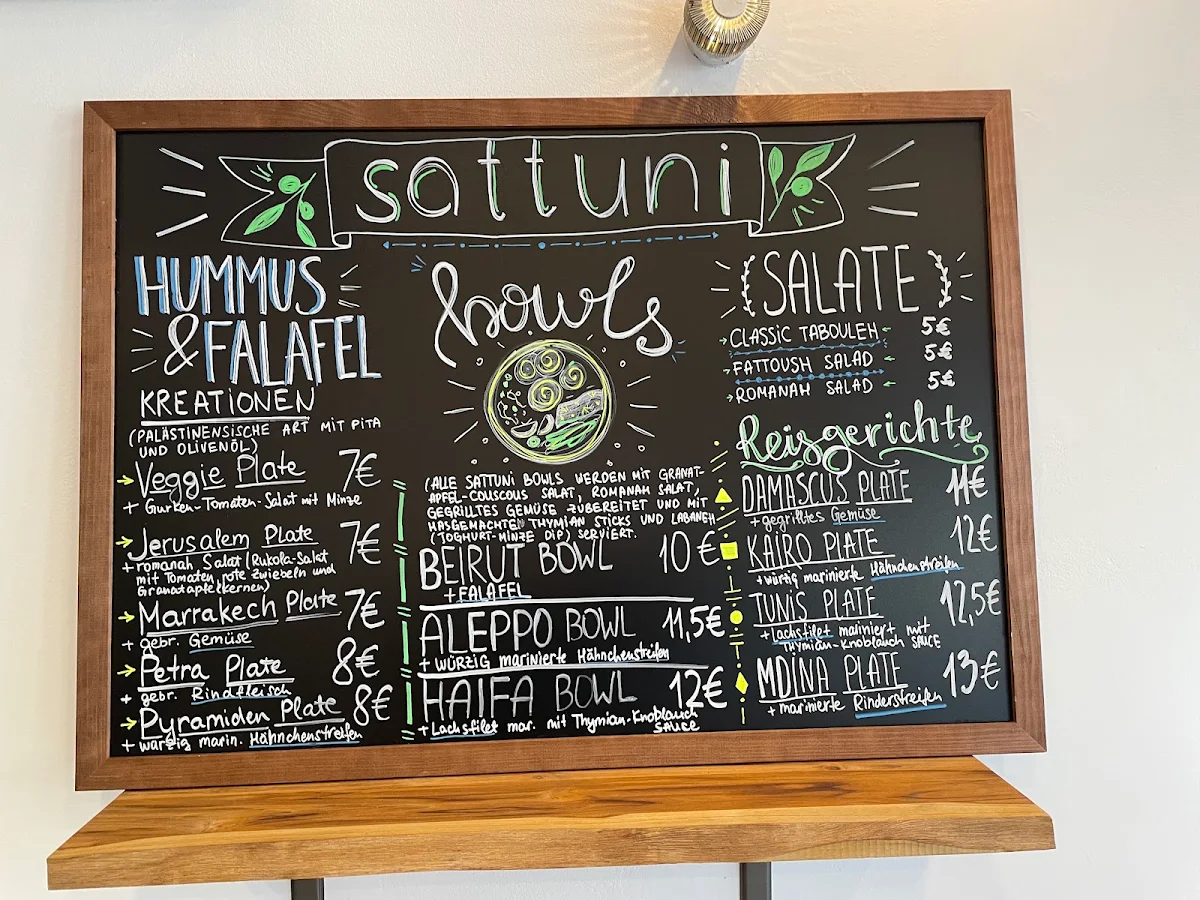 sattuni
HUMMUS
& FALAFEL
KREATIONEN
(PALÄSTINENSISCHE ART MIT PITA
UND OLIVENÖL)
Veggie Plate 7€
+ Gurken-Tomaten-Salat mit Minze
Jerusalem Plate 7€
+ romanah Salat (Rukola-Salat
mit Tomaten, rote Zwiebeln und
Granatapfelkernen)
Marrakech Plate 7€
+ gebr. Gemüse
Petra Plate 8€
+ gebr. Rindfleisch
Pyramiden Plate 8€
+ würzig marin. Hähnchenstreifen
bowls
(ALLE SATTUNI BOWLS WERDEN MIT GRANAT-
APFEL-COUSCOUS SALAT, ROMANAH SALAT,
GEGRILLTES GEMÜSE ZUBEREITET UND MIT
HASGEMACHTEN THYMIAN STICKS UND LABANEH
(TOGHURT-MINZE DIP) SERVIERT.
BEIRUT BOWL 10€
+ FALAFEL
ALEPPO BOWL 11,5€
+ WÜRZIG marinierte Hähnchenstreifen
HAIFA BOWL 12€
+ Lachsfilet mar. mit Thymian-Knoblauch
SAUCE
SALATE
CLASSIC TABOULEH 5€
FATTOUSH SALAD 5€
ROMANAH SALAD 5€
Reisgerichte
DAMASCUS PLATE 11€
+ gegrilltes Gemüse
KAIRO PLATE 12€
+ würtig marinierte Hähnchenstreifen
TUNIS PLATE 12,5€
+ Lachsfilet mariniert mit
THYMIAN-KNOBLAUCH SAUCE
MDINA PLATE 13€
+ marinierte Rinderstreifen